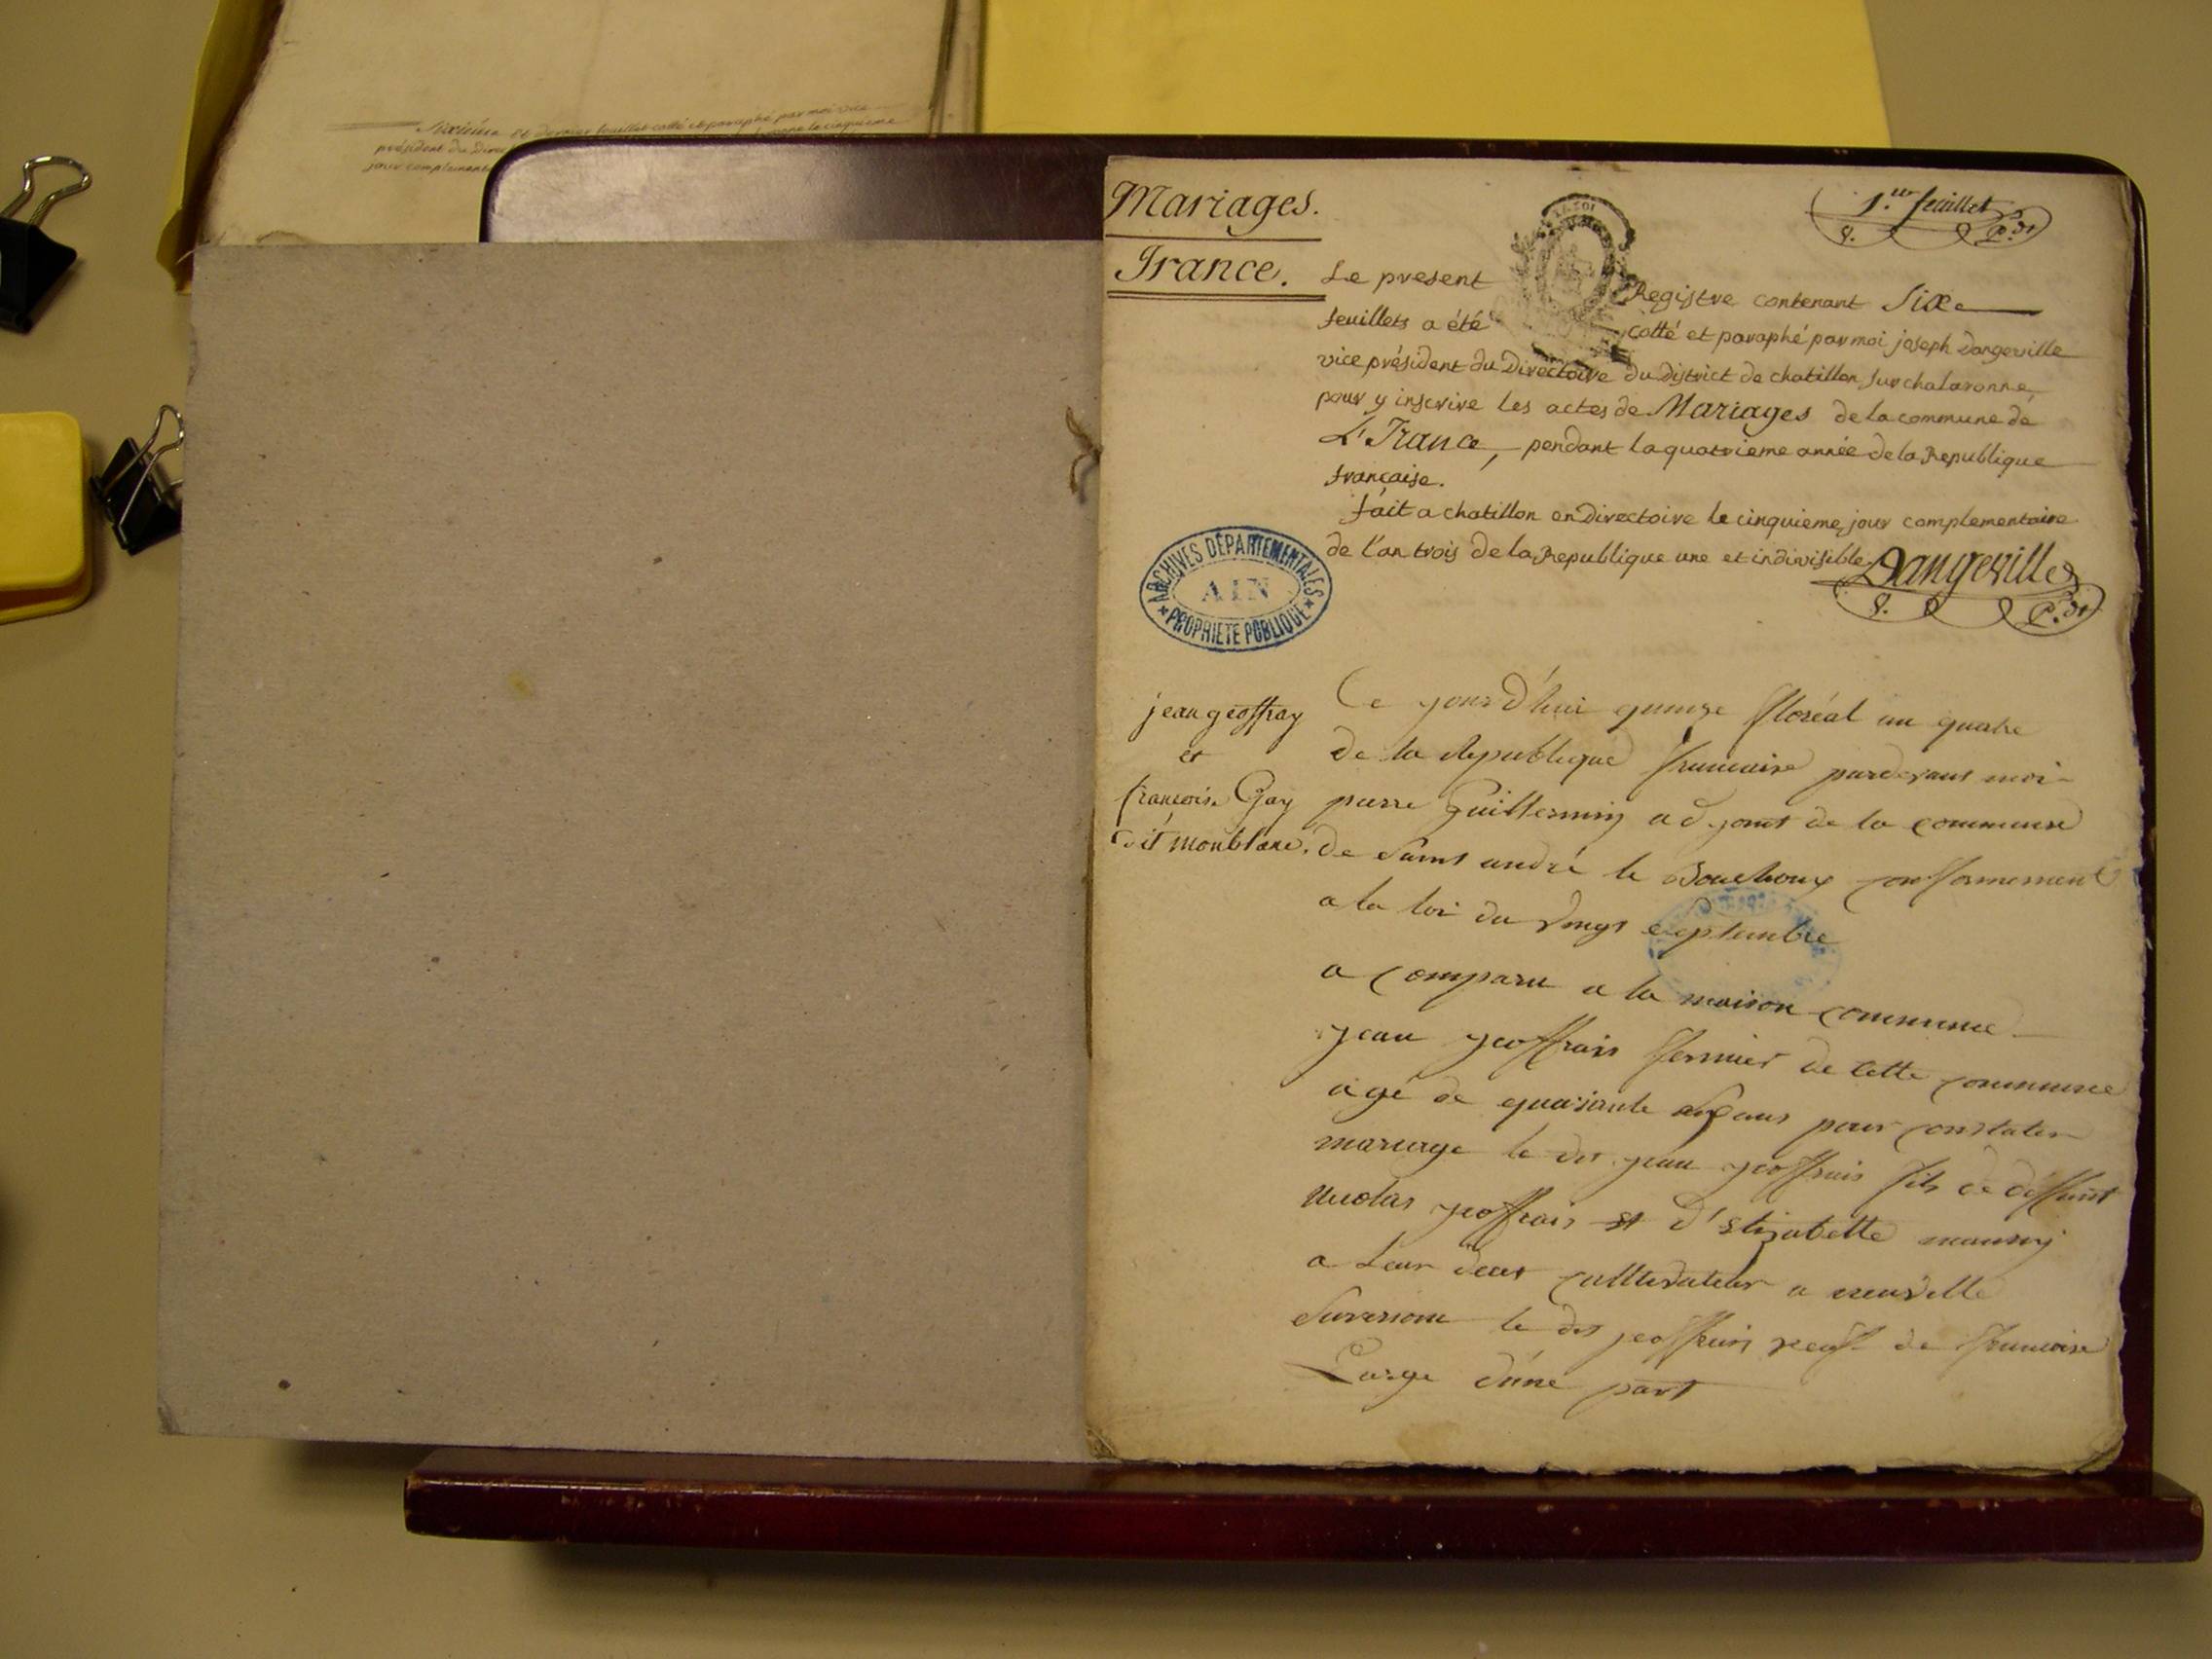 Sixième et dernier feuillet cotté et paraphé par moi vice
président du Direc
jour complement
Mariages.
France.
1.er feuillet
Le present Registre contenant Six
feuillets a été cotté et paraphé par moi joseph Dangeville
vice président du Directoire du District de chatillon sur chalaronne,
pour y inscrire les actes de Mariages de la commune de
L'France, pendant la quatrieme année de la Republique
française.
fait a chatillon en Directoire le cinquieme jour complementaire
de l'an trois de la Republique une et indivisible
Dangeville
P. dt
ARCHIVES DÉPARTEMENTALES
AIN
PROPRIÉTÉ PUBLIQUE
jean geoffray
et
francoise Gay
dit monblanc.
Ce jourd'hui quinze floréal an quatre
de la Republique francaise pardevant moi
pierre Guillermin adjoint de la commune
de Saint andré le Bouchoux conformement
a la loi du vingt septembre
a comparu a la maison commune
jean jeoffrais fermier de cette commune
agé de quarante ans pour constater
mariage le dit jean jeoffrais fils de deffunt
nicolas jeoffrais et d'Elizabette
a leur deces cultivateur a neuville
Surrenom le dit jeoffrais veuf de francoise
Large d'une part